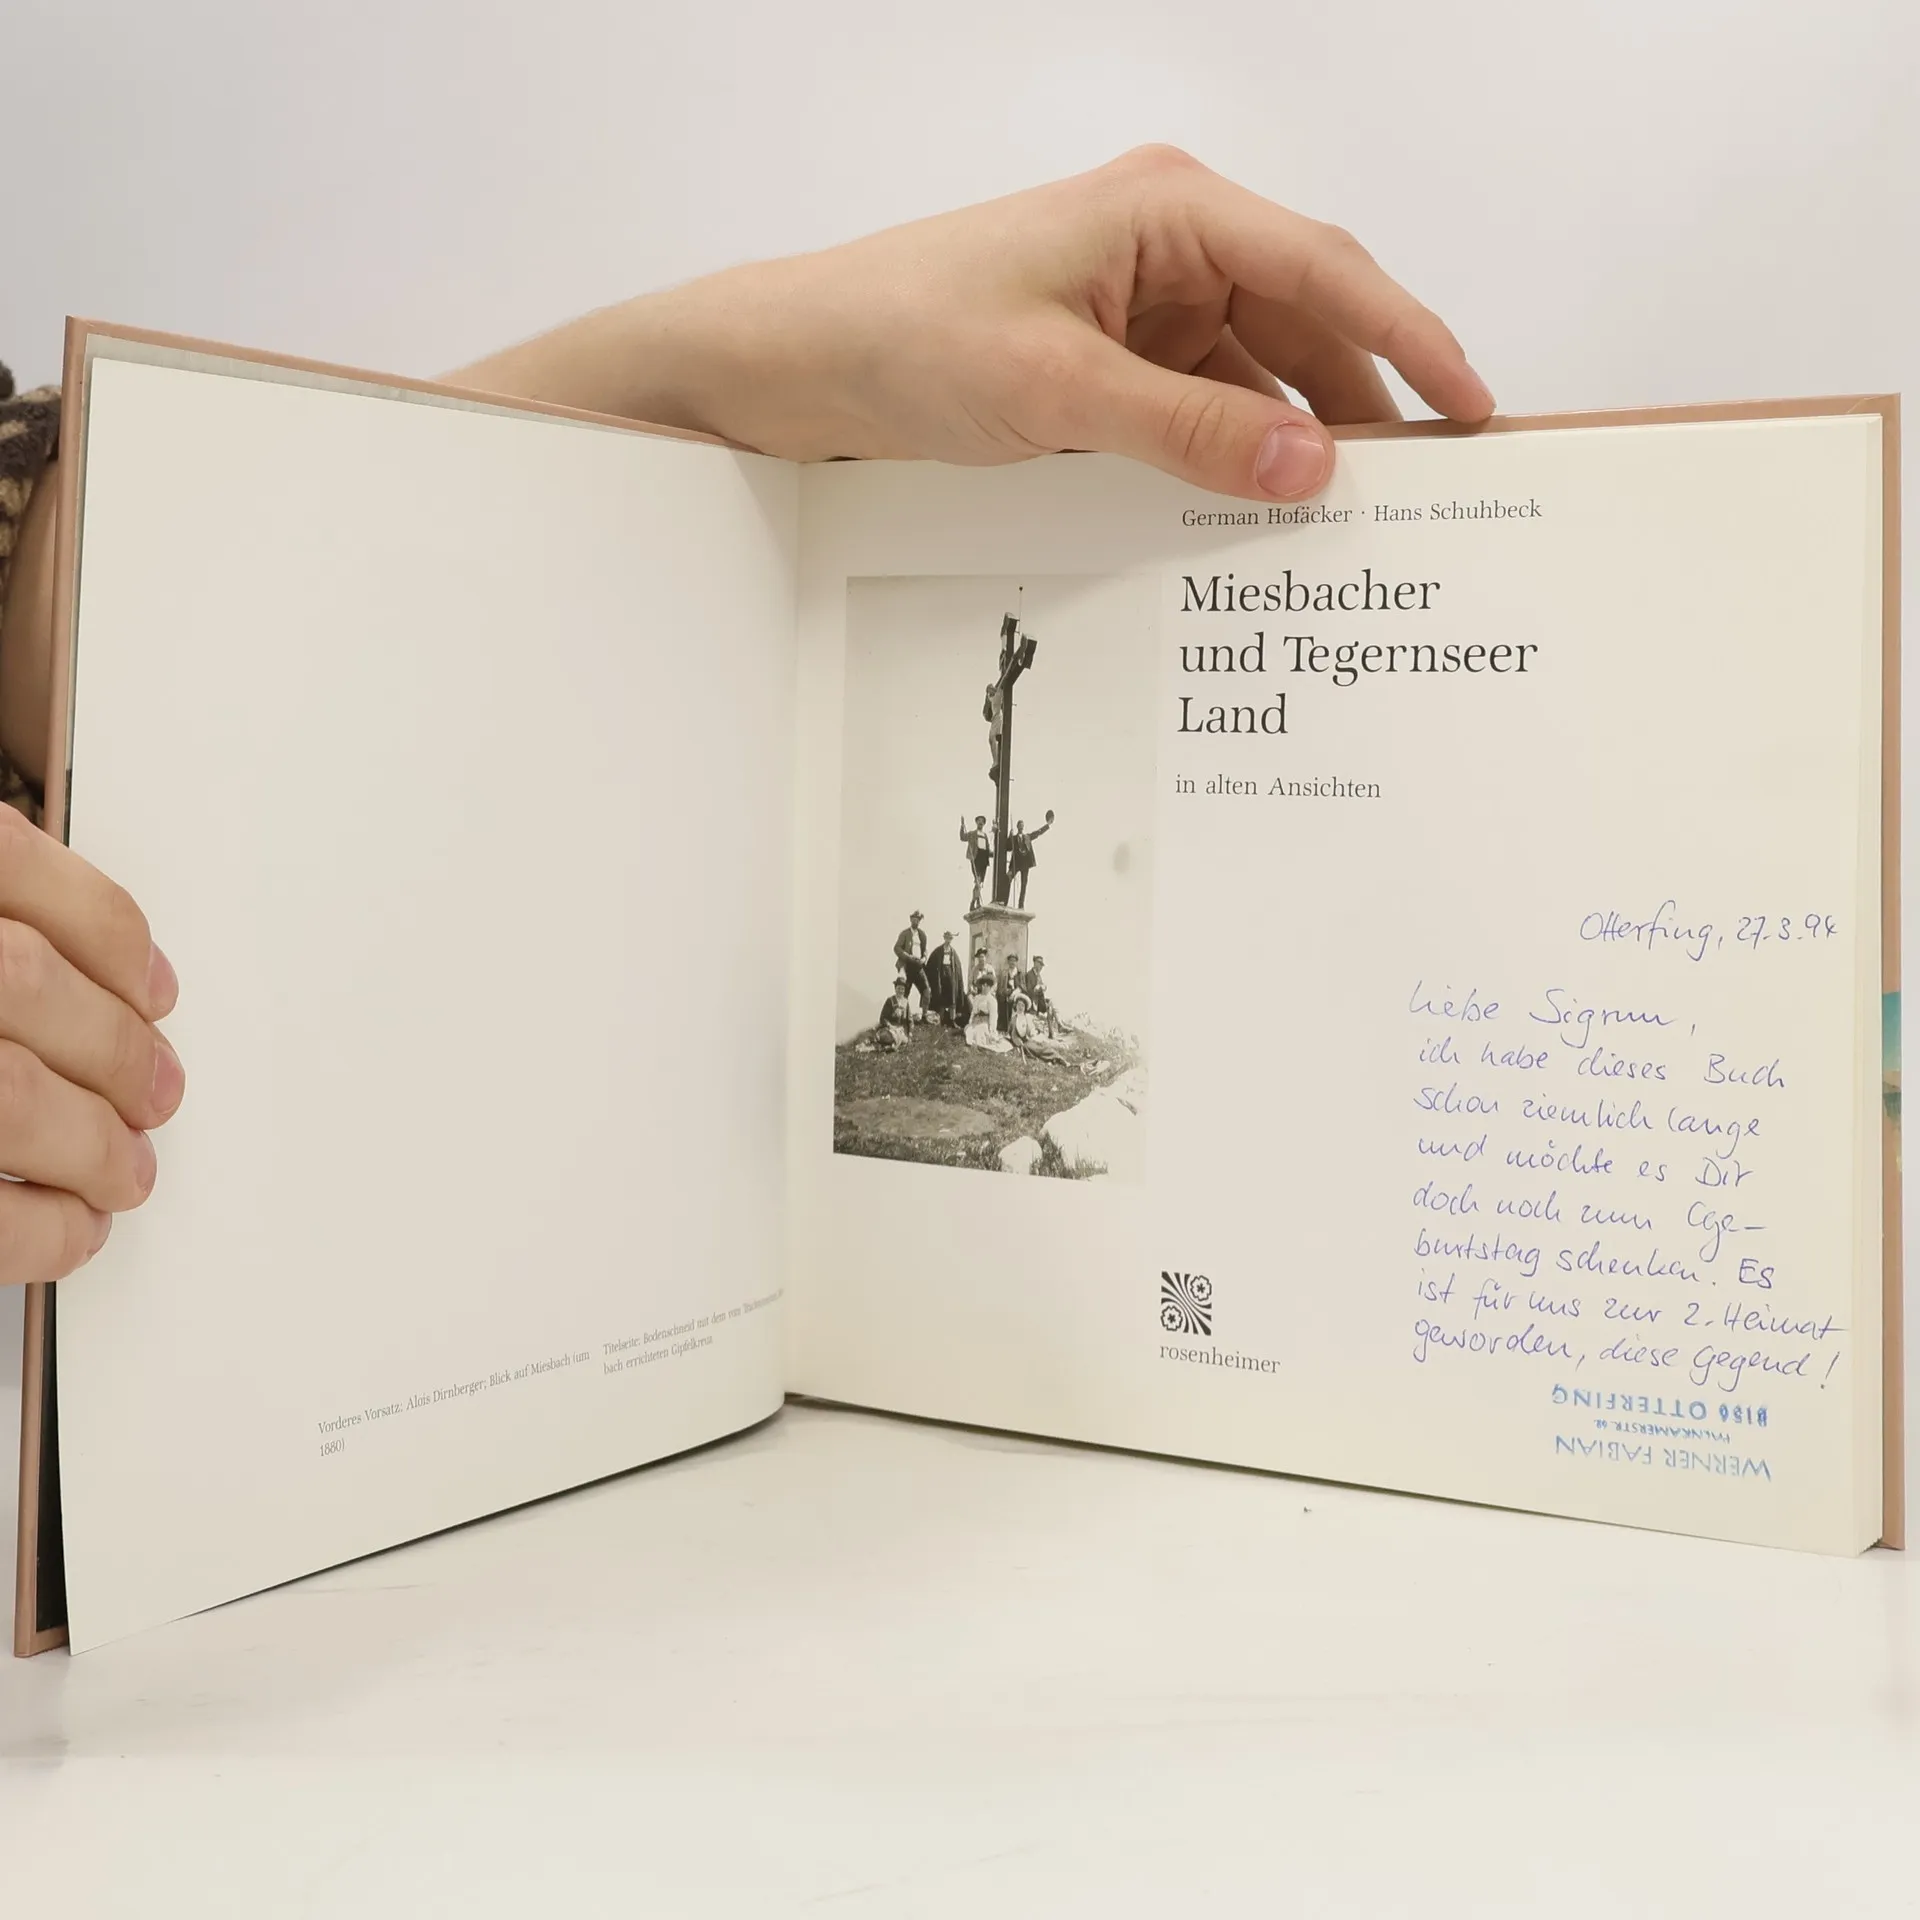 Vorderes Vorsatz: Alois Dirnberger; Blick auf Miesbach (um
1880)
Titelseite: Bodenschneid mit dem vom
bach errichteten Gipfelkreuz
German Hofäcker · Hans Schuhbeck
Miesbacher
und Tegernseer
Land
in alten Ansichten
rosenheimer
Otterfing, 27.3.94
Liebe Sigrun,
ich habe dieses Buch
schon ziemlich lange
und möchte es Dir
doch noch zum Ge-
burtstag schenken. Es
ist für uns zur 2. Heimat
geworden, diese Gegend!
WERNER FABIAN
OTTERFING